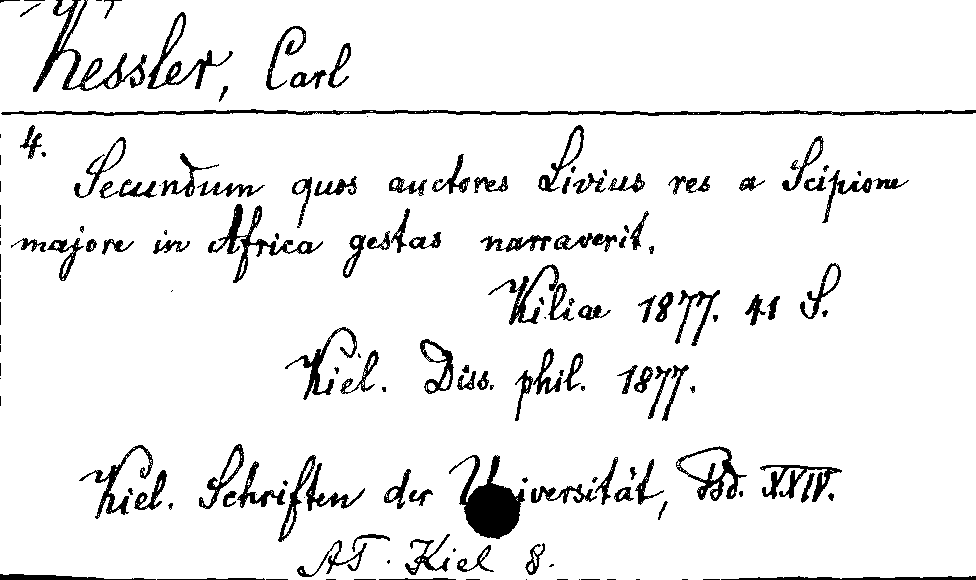 Kessler, Carl
4.
Secundum quos auctores Livius res a Scipione
majore in Africa gestas narraverit.
Kiliae 1877. 41 S.
Kiel. Diss. phil. 1877.
Kiel. Schriften der Universität, Bd. XXIV.
AT. Kiel 8.